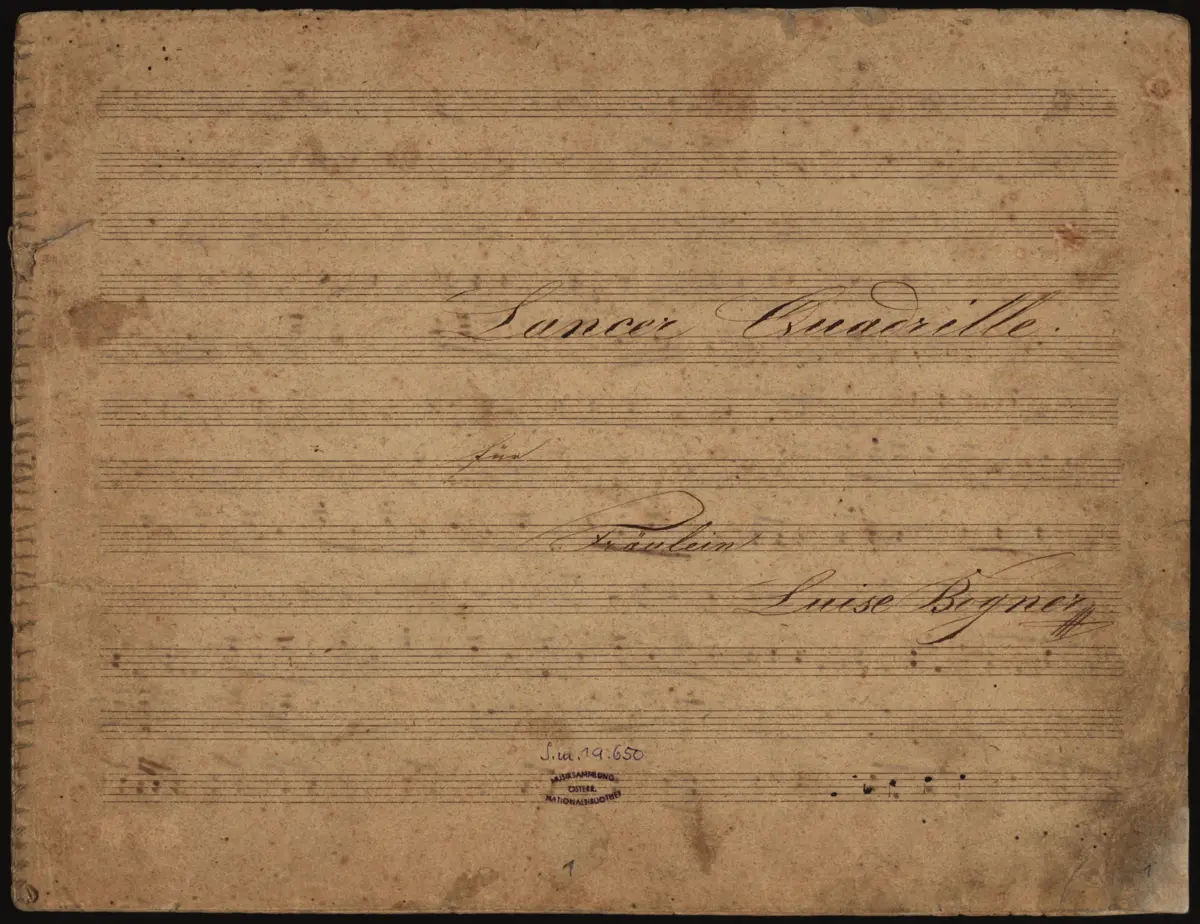 Lancer Quadrille.
für
Fräulein
Luise Bogner
S.m.19.650
MUSIKSAMMLUNG
ÖSTERR.
NATIONALBIBLIOTHEK
1
1